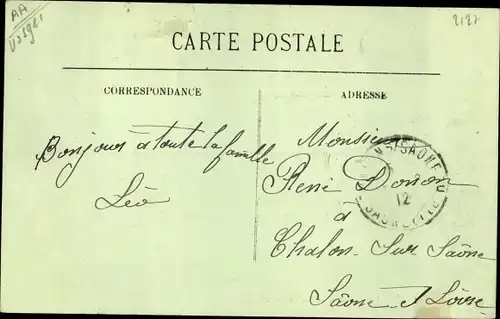 AA
Vosges
2127
CARTE POSTALE
CORRESPONDANCE
ADRESSE
Bonjours à toute la famille
Léo
Monsieur
René
à
Chalon Sur Saône
Saône et Loire
12